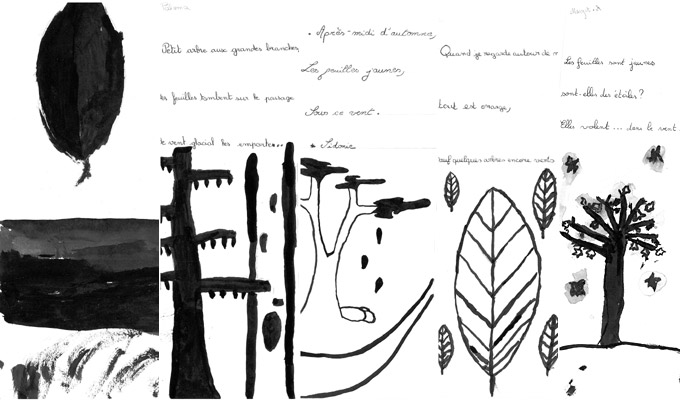 Petit arbre aux grandes branches,
es feuilles tombent sur le paysage
le vent glacial les emporte...
. Après-midi d'automne,
Les feuilles jaunes,
Sous ce vent.
* Sidonie
Quand je regarde autour de m
tout est orange,
auf quelques arbres encore verts
Les feuilles sont jaunes
sont-elles des étoiles ?
Elles volent ... dans le vent